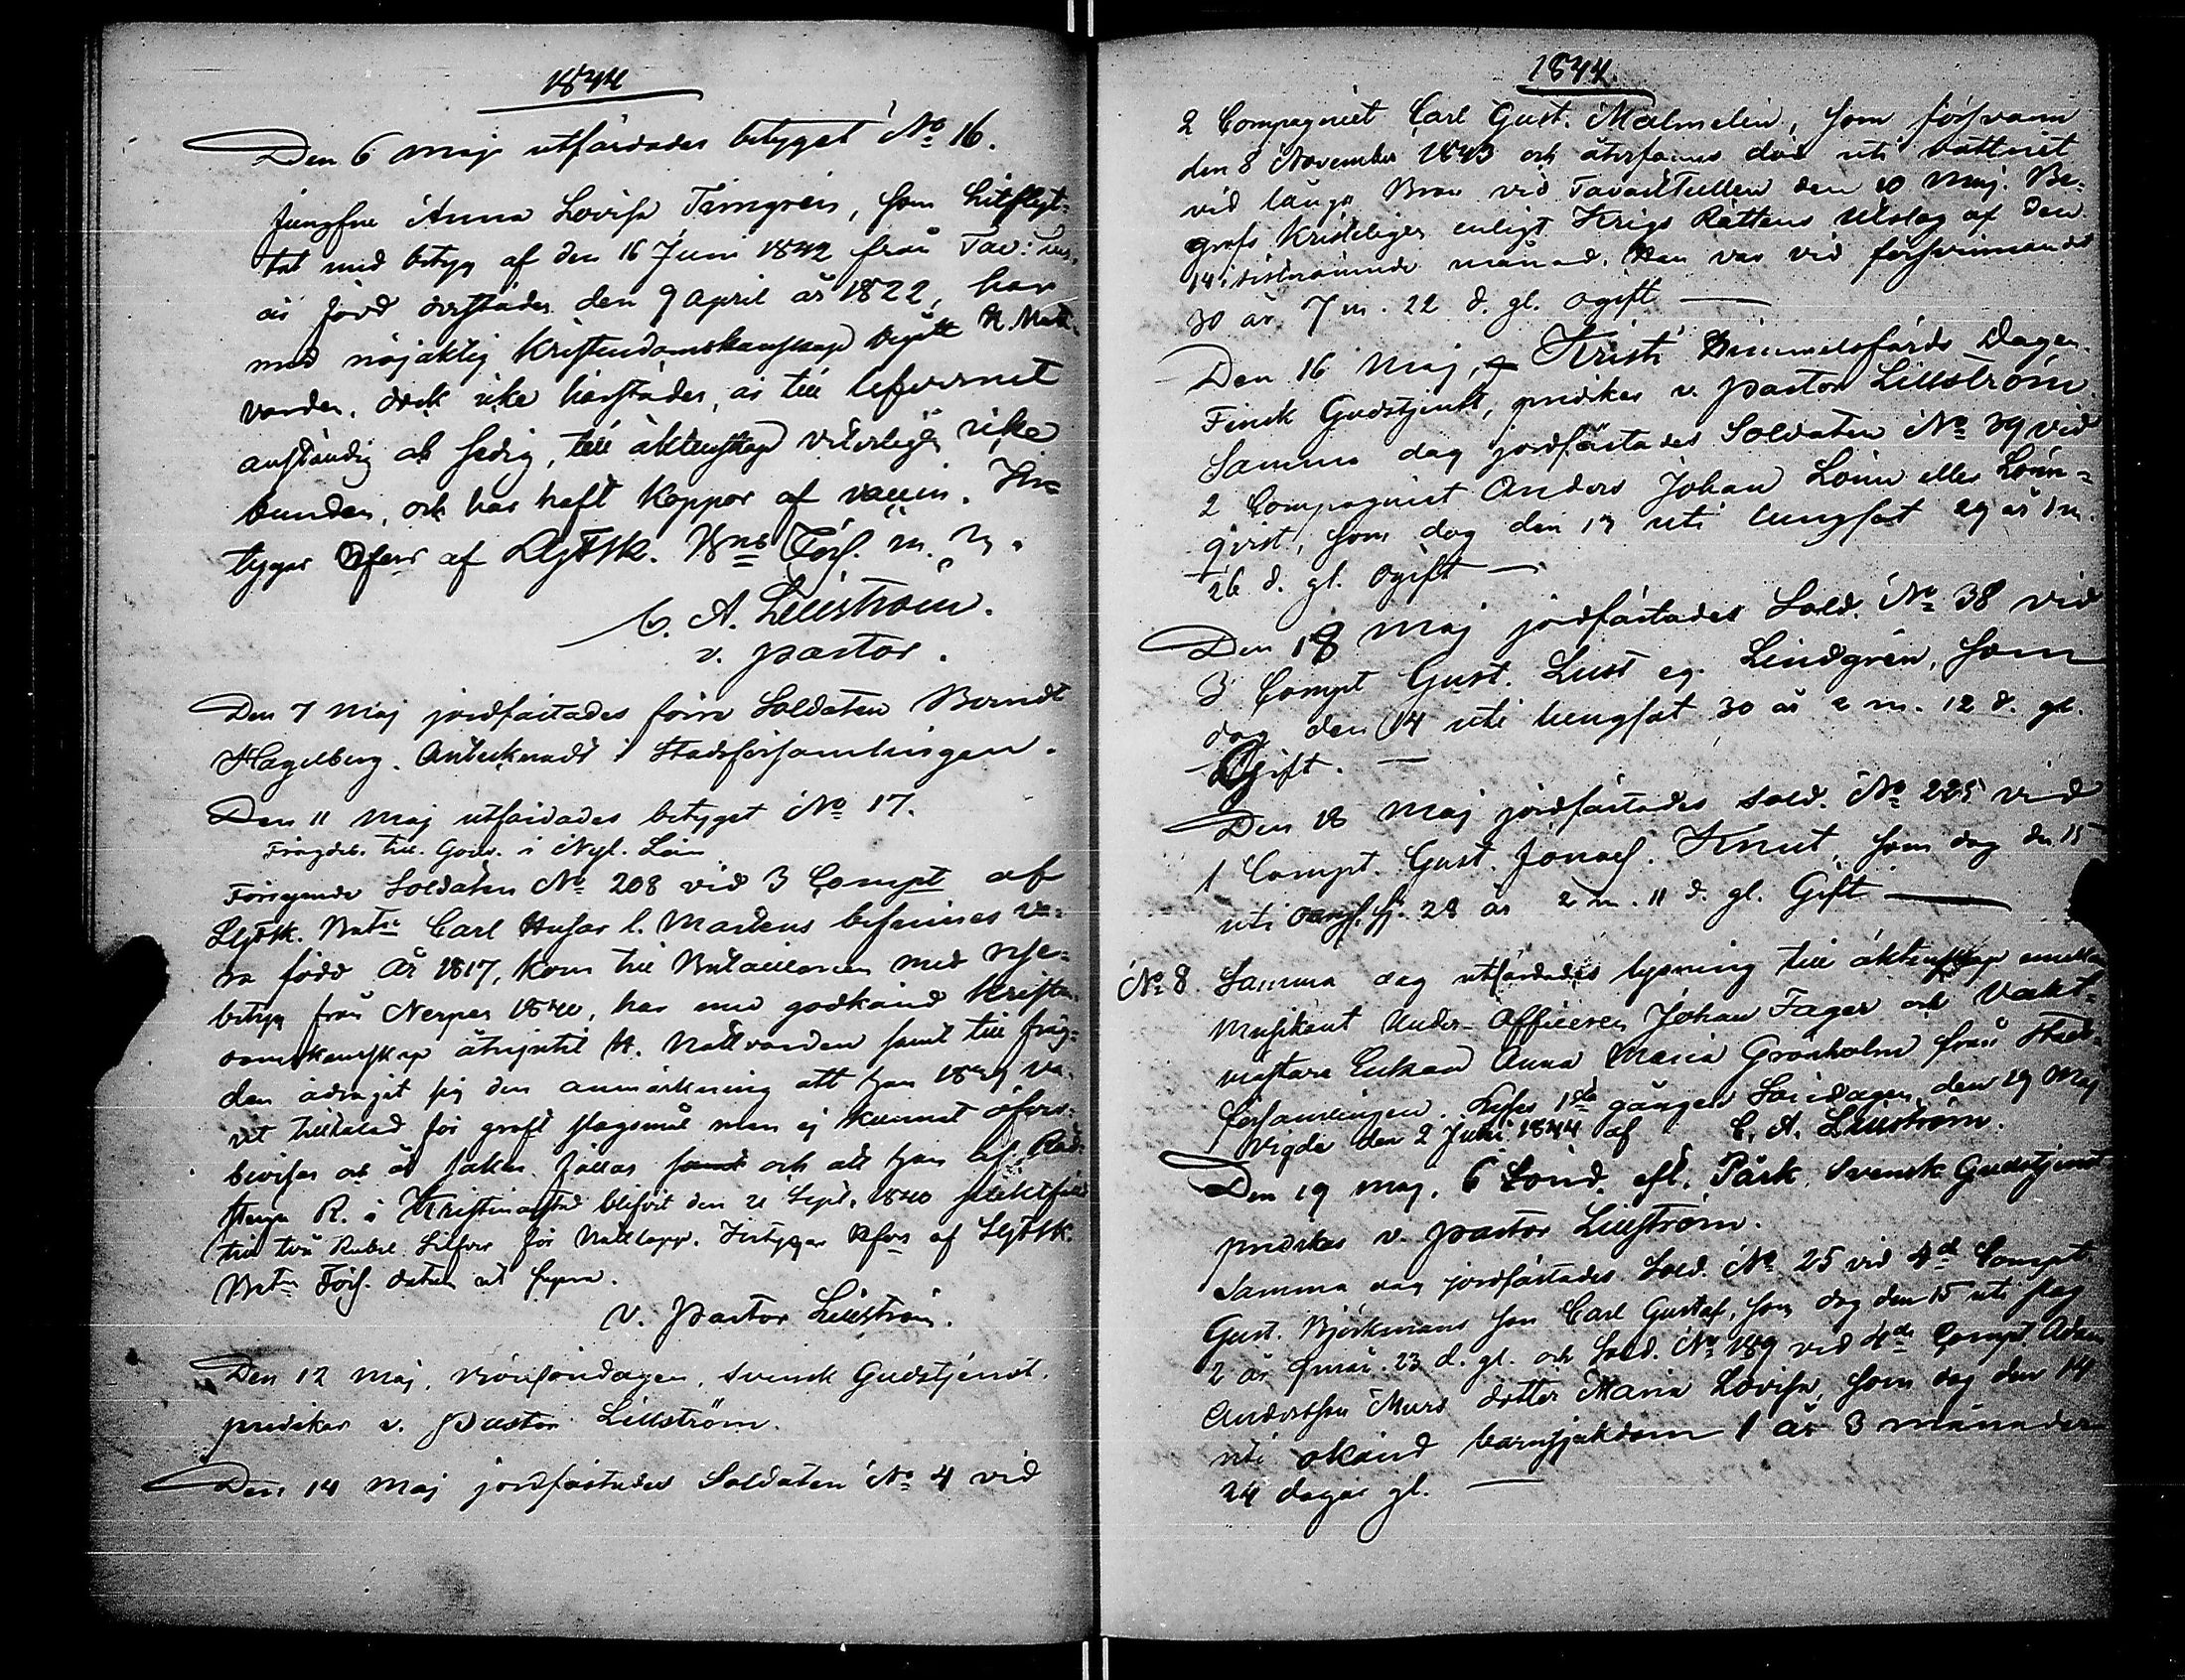 1844
Den 6 Maj utfärdades betyget No 16.
Jungfru Anna Lovisa Tamgren, som hitflyt-
tat med betyg af den 16 Juni 1842 från Tav:
är född derstädes den 9 April år 1822, har
med nöjaktig Kristendomskunskap begått H. Natt-
varden, dock icke härstädes, är till lefvernet
anständig och sedig, till äktenskap veterligen icke
bunden, och har haft koppor af vaccin. In-
tygar Åbo af LgFSk. Bns Förs. m. m.
C. A. Lillström.
v. pastor.
Den 7 Maj jordfästades förre Soldaten Berndt
Hagelberg. Antecknadt i Stadsförsamlingen.
Den 11 Maj utfärdades betyget No 17.
till Gouv. i Nyl. Län
Föregende Soldaten No 208 vid 3 Compt af
LgFSk. Batn Carl Husar l. Martens befinnes va-
ra född År 1817, kom till Bataillonen med
betyg från Nerpes 1840, har med godkänd Kristen-
domskunskap åtnjutit H. Nattvarden samt till
den ådragit sig den anmärkning att han 1839 va-
rit tilltalad för groft slagsmål men ej kunnat öfver-
bevisas och är saken fällas och att han af Råd-
stugu R. i Kristinestad blifvit den 21 Sept. 1840 pliktfäld
till två Rubel Silfver för Nattlopp. Intygar af LgFSk.
Batn Förs. datum ut supra.
V. Pastor Lillström.
Den 12 Maj, Bönsöndagen, svensk Gudstjenst.
predikar v. Pastor Lillström.
Den 14 Maj jordfästades Soldaten No 4 vid
1844.
2 Compagniet Carl Gust. Malmelin, som försvann
den 8 November 1843 och återfanns död uti vattnet
vid långa Bron vid Tavast Tullen den 10 Maj. Be-
grofs Kristeligen enligt Krigs Rättens Utslag af den
14 sistnämnde månad. Han var vid försvinnandet
30 år 7 m. 22 d. gl. ogift —
Den 16 Maj, Kristi Himmelsfärds Dagen.
Finsk Gudstjenst, predikar v. pastor Lillström.
Samma dag jordfästades Soldaten No 39 vid
2 Compagniet Anders Johan Lönn eller Lönn-
qvist, som dog den 13 uti lungsot 29 år 1 m.
26 d. gl. Ogift —
Den 18 Maj jordfästades Sold. No 38 vid
3 Compt Gust. Lust eg. Lindgrén, som
dog den 14 uti lungsot 30 år 2 m. 12 d. gl.
Ogift. —
Den 18 Maj jordfästades Sold. No 225 vid
1 Compt. Gust. Jonas. Knut, som dog den 15
uti sj. 28 år 2 m. 11 d. gl. Gift —
No 8 Samma dag utfärdades lysning till äktenskap emellan
Musikant Under-Officeren Johan Fager och Vakt-
mästare Enkan Anna Maria Grönholm från Stads-
församlingen. Lyses 1sta gången Söndagen den 19 Maj
Vigde den 2 Juni 1844 af C. A. Lillström.
Den 19 Maj. 6 Sönd. eft. Påsk Svensk Gudstjenst
predikar v. pastor Lillström.
Samma dag jordfästades Sold. No 25 vid 4de Compt
Gust. Björkmans son Carl Gustaf, som dog den 15 uti slag
2 år 23 d. gl. och Sold. No 189 vid 4de Compt Adam
Andersson Murs dotter Maria Lovisa, som dog den 14
uti okänd barnsjukdom 1 år 3 månader
24 dagar gl. —